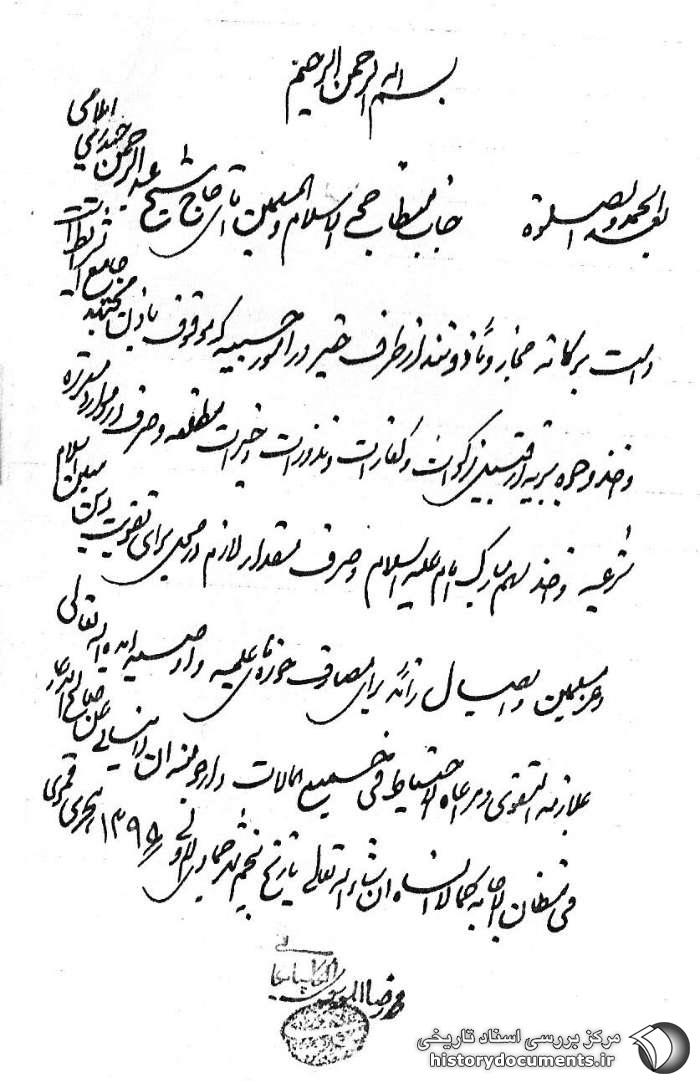 بسم الله الرحمن الرحیم
بعد الحمد و الصلوة جناب مستطاب حجة الاسلام و المسلمین آقای حاج شیخ عبدالرحمن حیدری ایلامی
دامت برکاته مجاز و مأذونند از طرف حقیر در امور حسبیه که موقوف باذن مجتهد جامع الشرایط است
و اخذ وجوه بریه از قبیل زکوات و کفارات و نذورات و خیرات مطلقه و صرف در موارد مقرره
شرعیه و اخذ سهم مبارک امام علیه السلام و صرف مقدار لازم در محل برای تقویت دین مبین اسلام
و عز مسلمین و ایصال زائد برای مصارف حوزه های علمیه و اوصیه ایده الله تعالی
بملازمة التقوی و مراعاة الاحتیاط فی جمیع الحالات و ارجو منه ان لا ینسانی من صالح الدعاء
فی مظان الاجابة کما لا انساه ان شاء الله تعالی بتاریخ پنجم شهر جمادی الاولی ۱۳۹۵ هجری قمری
محمد رضا الموسوی
الگلپایگانی
مرکز بررسی اسناد تاریخی
historydocuments.ir